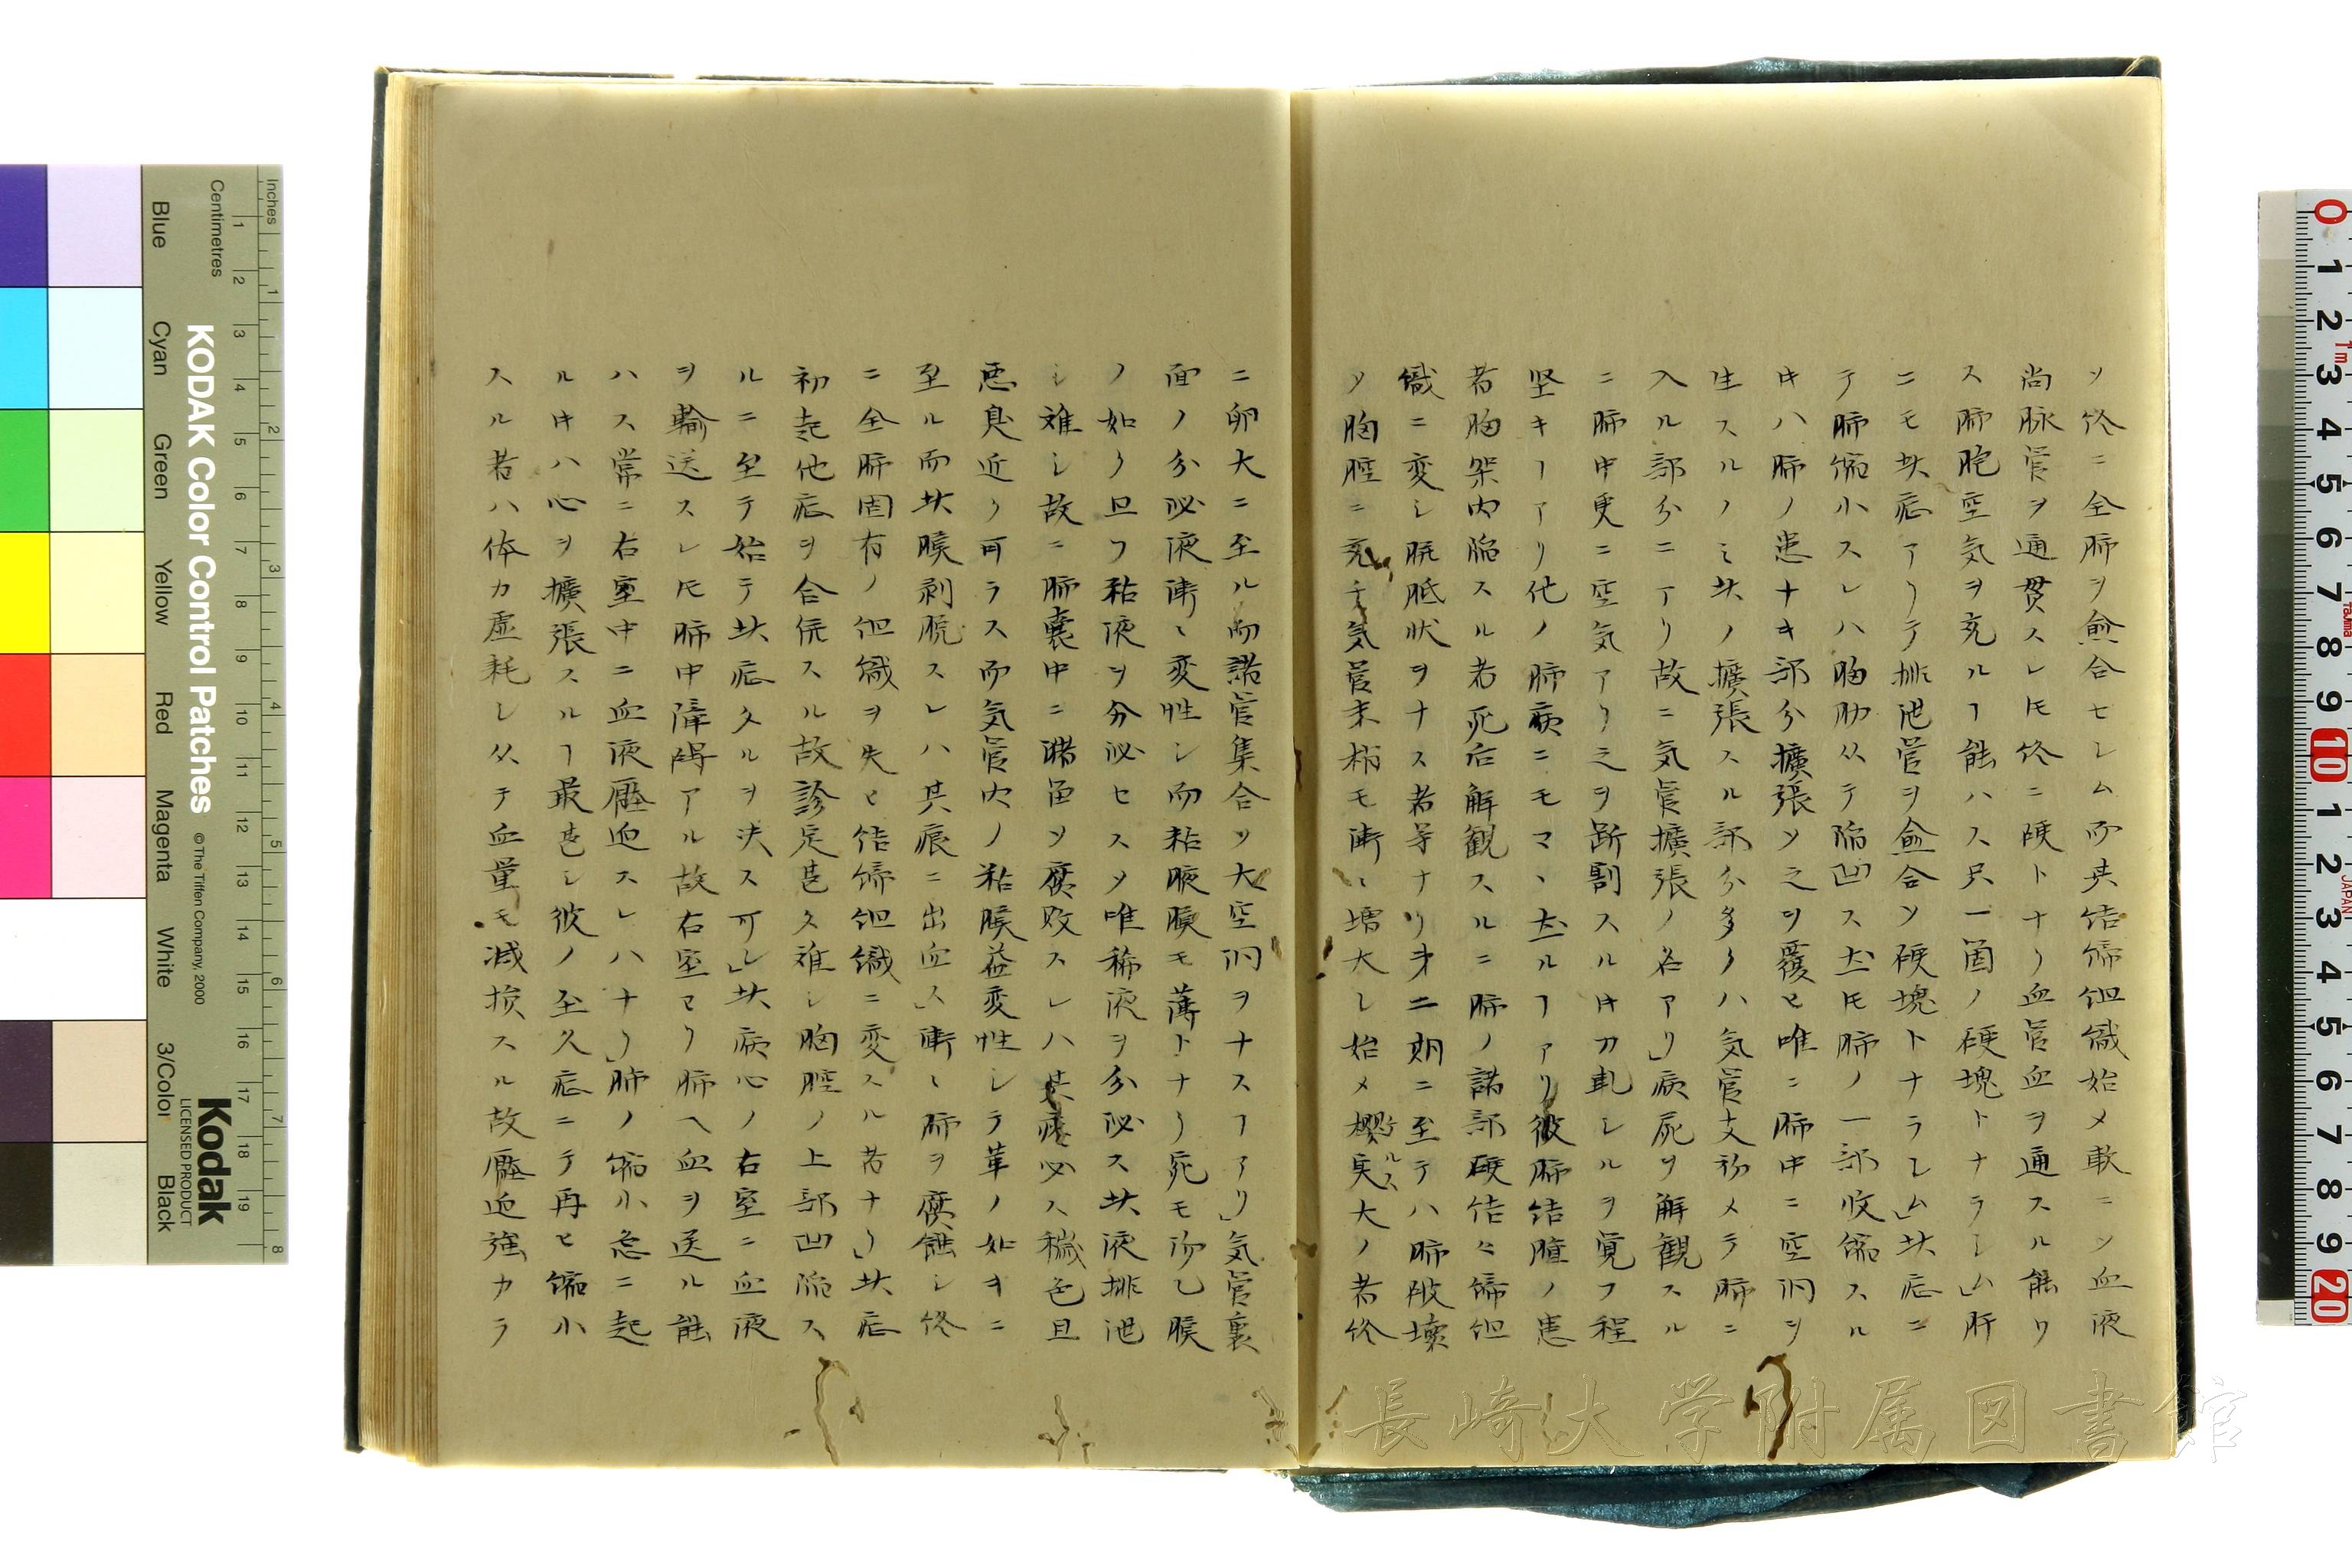 ソ終ニ全肺ヲ愈合セシム而其結締組織始メ軟ニシ血液
尚脉管ヲ通貫スレ𪜈終ニ硬トナリ血管血ヲ通スル能ワ
ス肺胞空気ヲ充ルヿ能ハス只一箇ノ硬塊トナラシム」肝
ニモ此症アリテ排泄管ヲ愈合ソ硬塊トナラシム」此症ニ
テ肺縮小スレハ胸肋从テ陥凹ス𪜈肺ノ一部收縮スル
𪜈ハ肺ノ患ナキ部分擴張ソ之ヲ覆ヒ唯ニ肺中ニ空洞ヲ
生スルノミ此ノ擴張スル部分多クハ気管支初メテ肺ニ
入ル部分ニアリ故ニ気管擴張ノ名アリ」病屍ヲ解観スル
ニ肺中更ニ空気アリ之ヲ断割スル𪜈刀軋レルヲ覚フ程
堅キヿアリ他ノ肺病ニモマヽ此ルヿアリ彼肺結腫ノ患
者胸架内陥スル者死后解観スルニ肺ノ諸部硬結々締組
織ニ変シ胼胝状ヲナス者等ナリ才二期ニ至テハ肺破壊
ソ胸腔ニ充チ気管末梢モ漸々増大シ始メ櫻実大ノ者終
ニ卵大ニ至ル而諸管集合ソ大空洞ヲナスヿアリ」気管裏
面ノ分泌液漸々変性シ而粘液膜モ薄トナリ宛モ沕乙膜
ノ如ク旦ワ粘液ヲ分泌セスソ唯稀液ヲ分泌ス此液排泄
シ難シ故ニ肺嚢中ニ潴畄ソ腐敗スレハ其痰必ス穢色且
悪臭近ク可ラス而気管内ノ粘膜益変性シテ革ノ如キニ
至ル而此膜剥脱スレハ其痕ニ出血ス」漸々肺ヲ腐蝕シ終
ニ全肺固有ノ組織ヲ失ヒ結締組織ニ変スル者ナリ」此症
初起他症ヲ合併スル故診定甚タ難シ胸腔ノ上部凹陥ス
ルニ至テ始テ此症タルヲ决ス可シ」此病心ノ右室ニ血液
ヲ輸送スレ𪜈肺中障碍アル故右室ヨリ肺ヘ血ヲ送ル能
ハス常ニ右室中ニ血液壓迫スレハナリ」肺ノ縮小急ニ起
ル𪜈ハ心ヲ擴張スルヿ最甚シ彼ノ至久症ニテ再ヒ縮小
スル者ハ体力虚耗シ从テ血量モ减损スル故壓迫强カラ